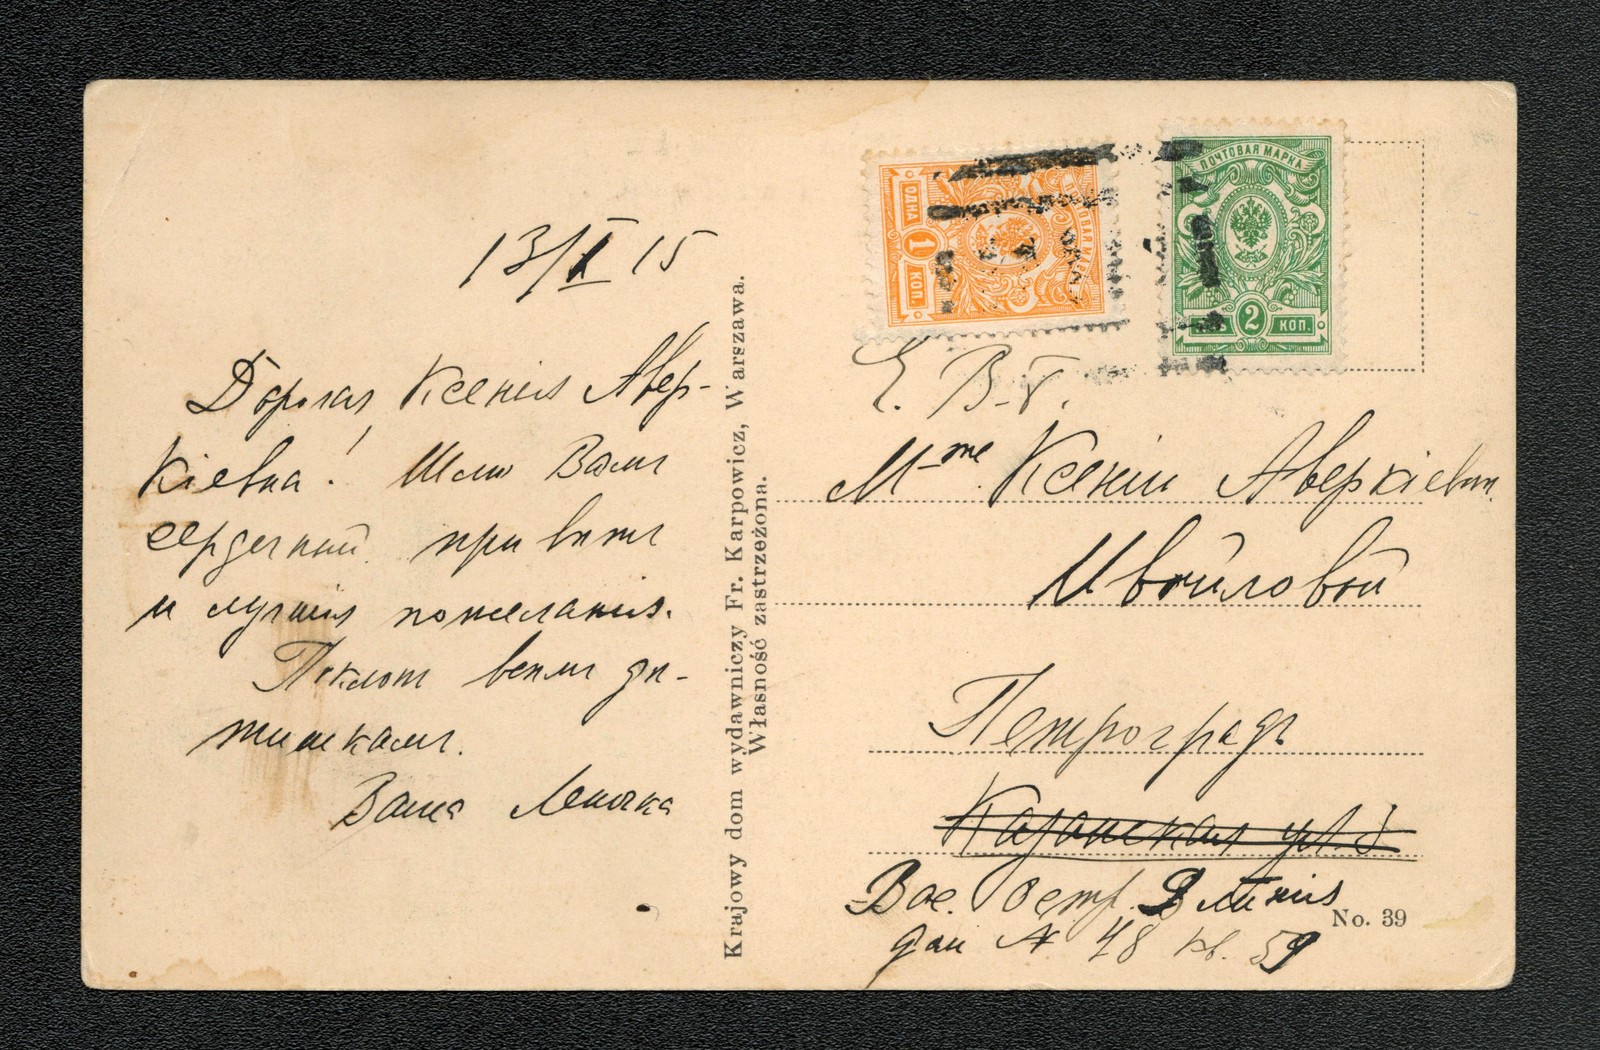 13/I 15
Дорогая Ксенія Авер-
кіевна! Шлю Вамъ
сердечный привѣтъ
и лучшія пожеланія.
Поклонъ всѣмъ дѣ-
тишкамъ.
Ваша Леночка
Krajowy dom wydawniczy Fr. Karpowicz, Warszawa.
Własność zastrzeżona.
ПОЧТОВАЯ МАРКА
ОДНА 1 КОП.
ПОЧТОВАЯ МАРКА
2 КОП.
Е. В-ѣ.
M-me Ксеніи Аверкіевнѣ
Ивойловой
Петроградъ
Казанская ул.
Вас. Остр. линія
дом № 48 кв. 59
No. 39